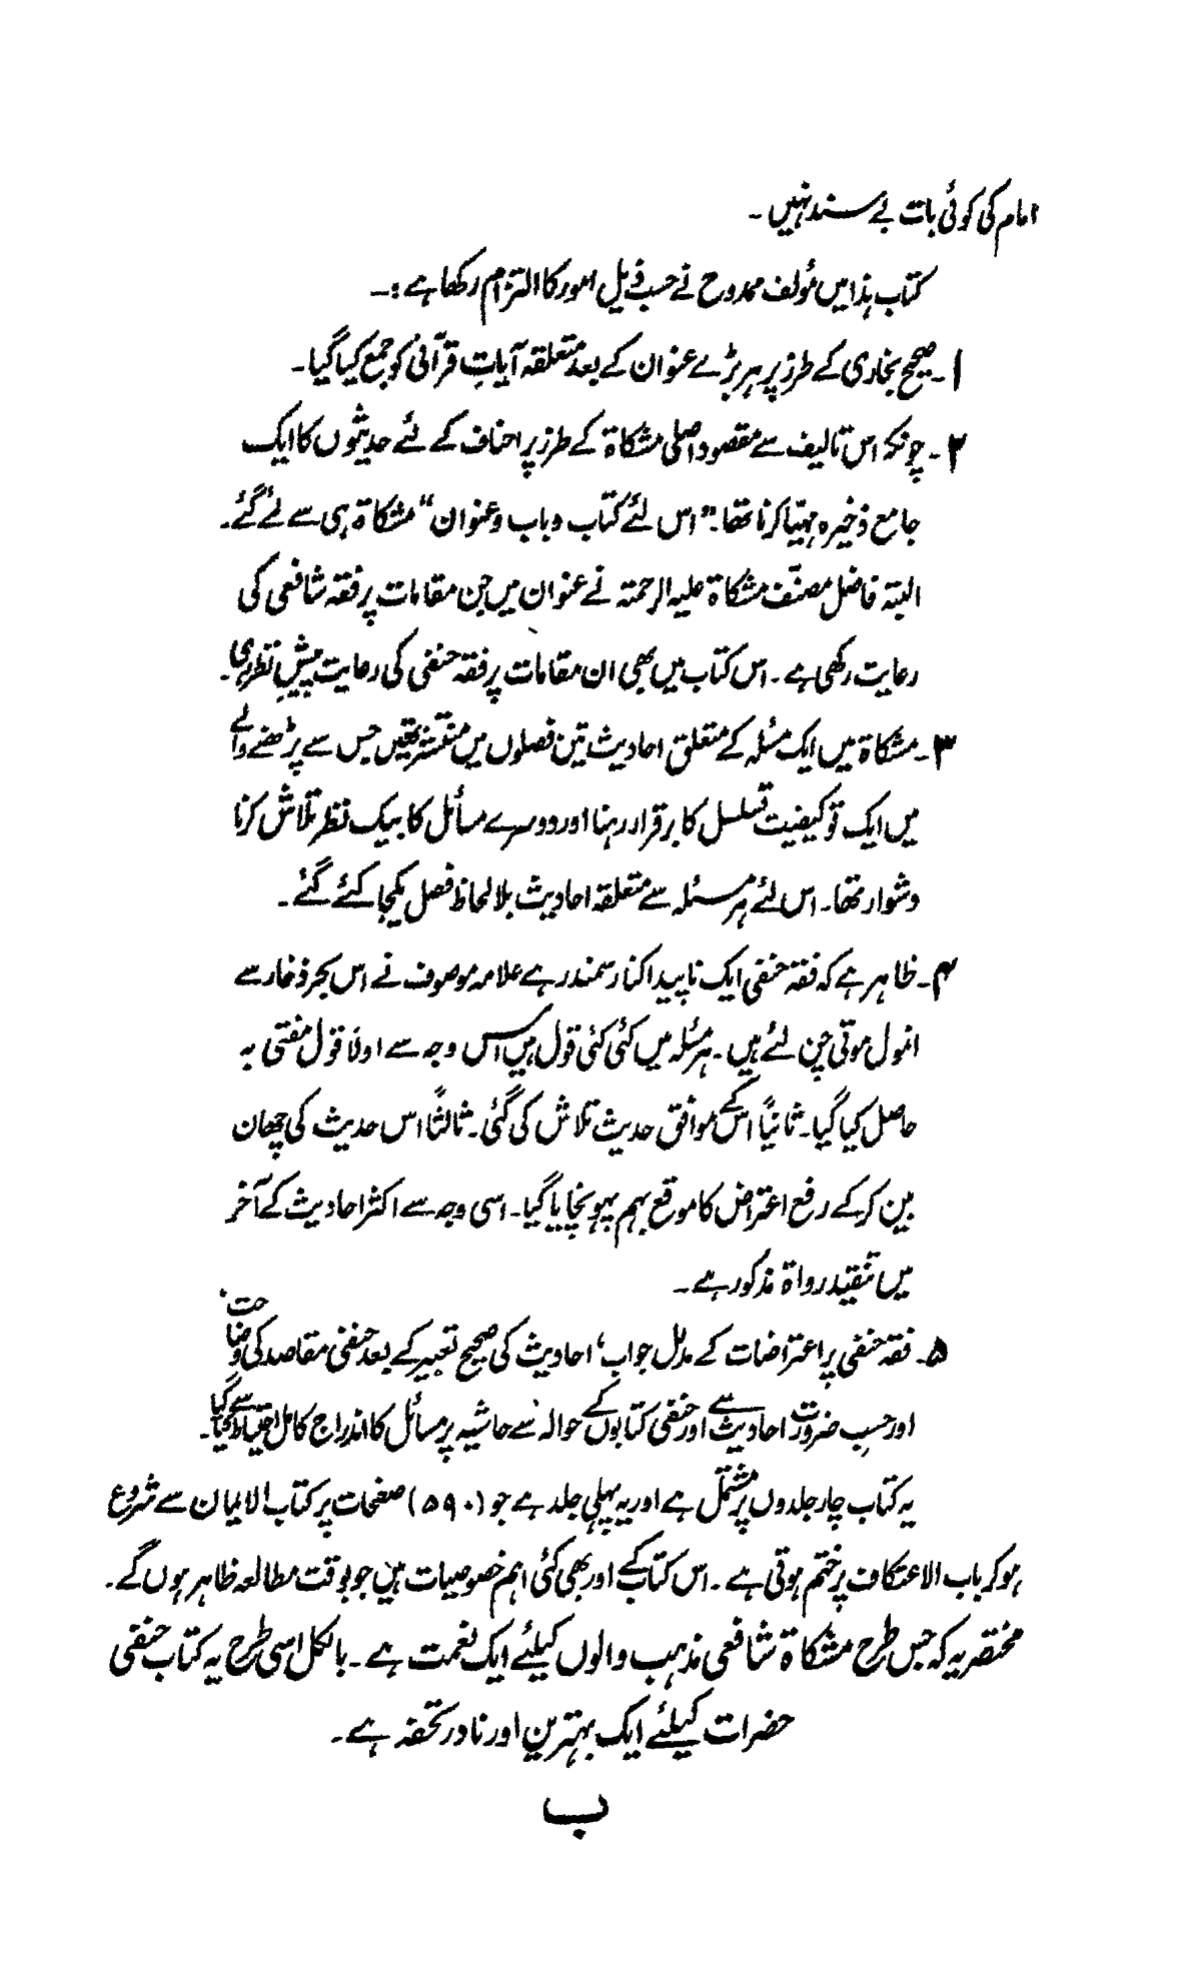 امام کی کوئی بات بے سند نہیں ۔
کتاب ہٰذا میں مؤلف ممدوح نے حسب ذیل امور کا التزام رکھا ہے :۔
۱۔ صحیح بخاری کے طرز پر ہر بڑے عنوان کے بعد متعلقہ آیاتِ قرآنی کو جمع کیا گیا۔
۲۔ چونکہ اس تالیف سے مقصود اصلی مشکاۃ کے طرز پر احناف کے لئے حدیثوں کا ایک
جامع ذخیرہ مہیّا کرنا تھا۔ "اس لئے کتاب و باب و عنوان" مشکاۃ ہی سے لئے گئے۔
البتہ فاضل مصنّف مشکاۃ علیہ الرحمتہ نے عنوان میں جن مقامات پر فقہ شافعی کی
رعایت رکھی ہے ۔ اس کتاب میں بھی ان مقامات پر فقہ حنفی کی رعایت پیشِ نظر رہی۔
۳۔ مشکاۃ میں ایک مسٔلہ کے متعلق احادیث تین فصلوں میں منتشر تھیں جس سے پڑھنے والے
میں ایک تو کیفیت تسلسل کا برقرار رہنا اور دوسرے مسائل کا بیک نظر تلاش کرنا
دشوار تھا۔ اس لئے ہر مسئلہ سے متعلقہ احادیث بلا لحاظ فصل یکجا کئے گئے ۔
۴۔ ظاہر ہے کہ فقہ حنفی ایک ناپیدا کنار سمندر ہے علامہ موصوف نے اس بحر ذخار سے
انمول موتی چن لئے ہیں ۔ ہر مسٔلہ میں کئی کئی قول ہیں اس وجہ سے اولاً قول مفتی بہ
حاصل کیا گیا۔ ثانیاً اس کے موافق حدیث تلاش کی گئی۔ ثالثاً اس حدیث کی چھان
بین کرکے رفع اعتراض کا موقع بہم پہونچایا گیا۔ اسی وجہ سے اکثر احادیث کے آخر
میں تنقید رواۃ مذکور ہے ۔
۵۔ فقہ حنفی پر اعتراضات کے مدلل جواب، احادیث کی صحیح تعبیر کے بعد حنفی مقاصد کی وضاحت
اور حسبِ ضرورت احادیث سے اور حنفی کتابوں کے حوالہ سے حاشیہ پر مسائل کا اندراج کامل احتیاط سے کیا گیا۔
یہ کتاب چار جلدوں پر مشتمل ہے اور یہ پہلی جلد ہے جو (۵۹۰) صفحات پر کتاب الایمان سے شروع
ہو کر باب الاعتکاف پر ختم ہوتی ہے ۔ اس کتاب کے اور بھی کئی اہم خصوصیات ہیں جو بوقت مطالعہ ظاہر ہوں گے۔
مختصر یہ کہ جس طرح مشکاۃ شافعی مذہب والوں کیلئے ایک نعمت ہے ۔ بالکل اسی طرح یہ کتاب حنفی
حضرات کیلئے ایک بہترین اور نادر تحفہ ہے ۔
ب